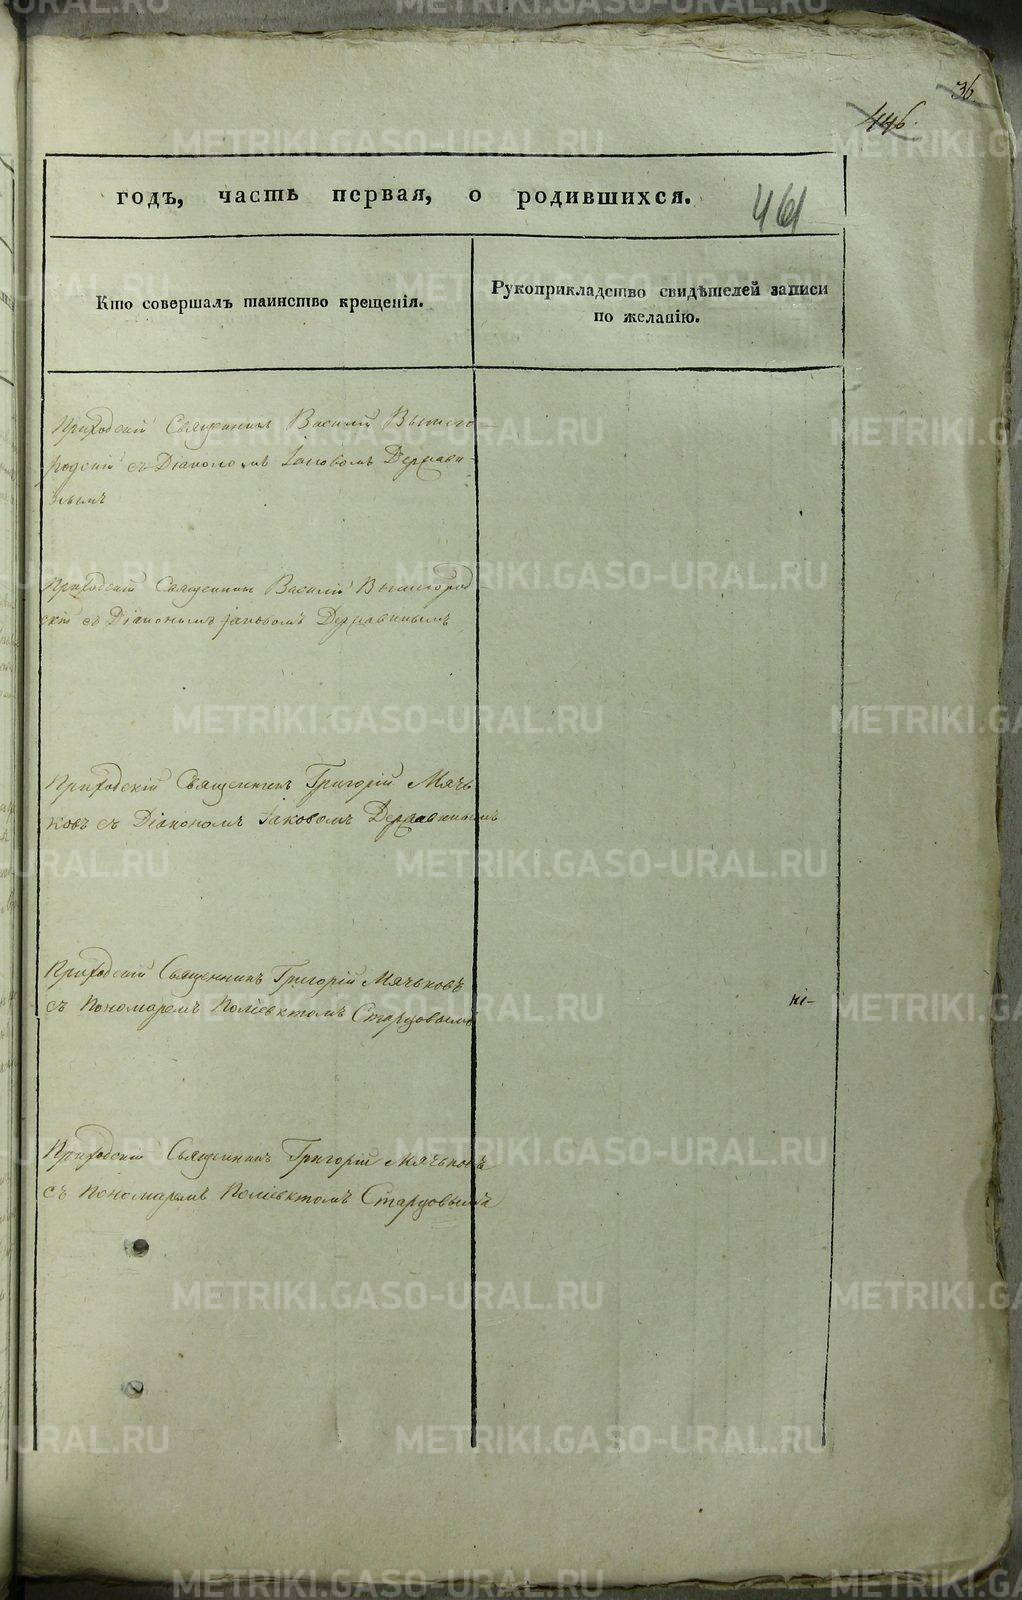 36.
446.
годъ, часть первая, о родившихся.
461
Кто совершалъ таинство крещенія.
Рукоприкладство свидѣтелей записи
по желанію.
Приходскій Священникъ Василій Вышего-
родскій съ Діакономъ Іаковомъ Держави-
нымъ
Приходскій Священникъ Василій Вышегород
скій съ Діакономъ Іаковомъ Державинымъ
Приходскій Священникъ Григорій Мячь
ковъ съ Діакономъ Іаковомъ Державинымъ
Приходскій Священникъ Григорій Мячьковъ
съ Пономаремъ Поліевктомъ Старцовымъ
Приходскій Священникъ Григорій Мячьковъ
съ Пономаремъ Поліевктомъ Старцовымъ
METRIKI.GASO-URAL.RU